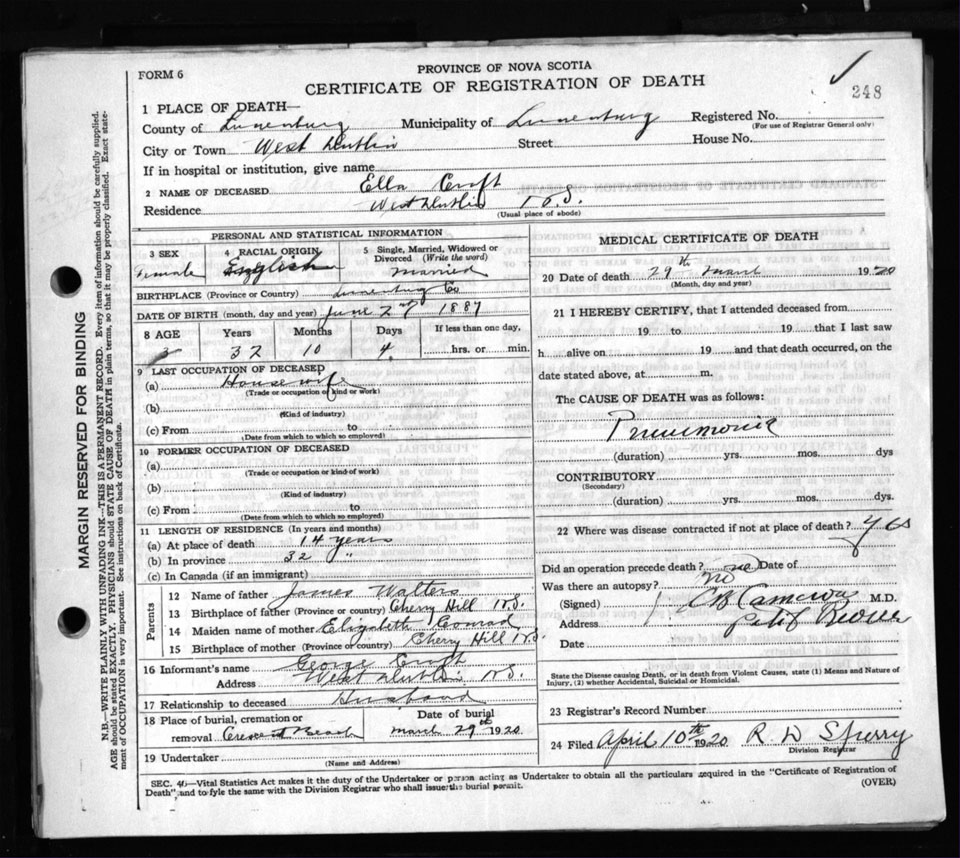 FORM 6
PROVINCE OF NOVA SCOTIA
CERTIFICATE OF REGISTRATION OF DEATH
248
1 PLACE OF DEATH—
County of Lunenburg Municipality of Lunenburg Registered No.
(For use of Registrar General only)
City or Town West Dublin Street House No.
If in hospital or institution, give name
2 NAME OF DECEASED Ella Croft
Residence West Dublin N.S.
(Usual place of abode)
PERSONAL AND STATISTICAL INFORMATION
3 SEX 4 RACIAL ORIGIN 5 Single, Married, Widowed or Divorced (Write the word)
Female English married
BIRTHPLACE (Province or Country) Lunenburg Co
DATE OF BIRTH (month, day and year) June 2nd 1887
8 AGE Years Months Days If less than one day,
32 10 4 hrs. or min.
9 LAST OCCUPATION OF DECEASED
(a) House wife
(Trade or occupation or kind or work)
(b)
(Kind of industry)
(c) From to
(Date from which to which so employed)
10 FORMER OCCUPATION OF DECEASED
(a)
(Trade or occupation or kind of work)
(b)
(Kind of industry)
(c) From to
(Date from which to which so employed)
11 LENGTH OF RESIDENCE (In years and months)
(a) At place of death 14 years
(b) In province 32 "
(c) In Canada (if an immigrant)
Parents
12 Name of father James Walters
13 Birthplace of father (Province or country) Cherry Hill N.S.
14 Maiden name of mother Elizabeth Conrad
15 Birthplace of mother (Province or country) Cherry Hill N.S.
16 Informant's name George Croft
Address West Dublin N.S.
17 Relationship to deceased Husband
18 Place of burial, cremation or removal Crescent Beach
Date of burial
March 29th 1920
19 Undertaker
(Name and Address)
MEDICAL CERTIFICATE OF DEATH
20 Date of death 29th March 1920
(Month, day and year)
21 I HEREBY CERTIFY, that I attended deceased from
19 to 19 that I last saw
h alive on 19 and that death occurred, on the
date stated above, at m.
The CAUSE OF DEATH was as follows:
Pneumonia
(duration) yrs. mos. dys
CONTRIBUTORY
(Secondary)
(duration) yrs. mos. dys.
22 Where was disease contracted if not at place of death? yes
Did an operation precede death? no Date of
Was there an autopsy? no
(Signed) C B Cameron M.D.
Address Petit Riviere
Date
State the Disease causing Death, or in death from Violent Causes, state (1) Means and Nature of Injury, (2) whether Accidental, Suicidal or Homicidal.
23 Registrar's Record Number
24 Filed April 10th 1920 R D Sperry
Division Registrar
SEC. 40—Vital Statistics Act makes it the duty of the Undertaker or person acting as Undertaker to obtain all the particulars required in the "Certificate of Registration of
Death", and to fyle the same with the Division Registrar who shall issue the burial permit. (OVER)
MARGIN RESERVED FOR BINDING
N.B.—WRITE PLAINLY WITH UNFADING INK—THIS IS A PERMANENT RECORD. Every item of information should be carefully supplied.
AGE should be stated EXACTLY. PHYSICIANS should STATE CAUSE OF DEATH in plain terms, so that it may be properly classified. Exact statement of OCCUPATION is very important. See instructions on back of Certificate.